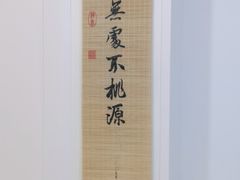 無處不桃源